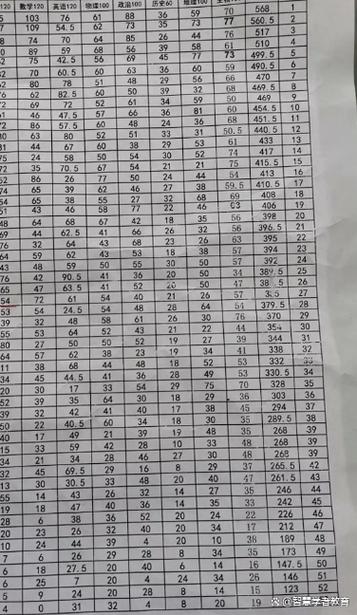 数学120 英语120 物理100 政治100 历史60 地理100
103 76 61 88 36 59 70 568 1
109 54.5 62 73 35 73 77 560.5 2
74 70 64 85 26 44 76 517 3
89 59 68 56 39 58 61 510 4
75 42.5 56 69 45 77 73 499.5 5
70 60.5 60 63 36 60 59 490.5 6
80 78 51 48 29 56 66 470 7
62 82.5 60 50 39 32 68 469.5 8
69 72 52 61 34 59 50 469 9
46 47.5 57 66 36 81 60 454.5 10
86 57.5 60 48 24 36 68 451.5 11
63 80 52 51 33 31 50.5 440.5 12
44 67 60 38 29 53 61 433 13
24 58 50 54 30 52 74 417 14
35 70.5 67 54 21 21 75 415.5 15
86 26 77 50 24 44 54 413 16
65 39 62 46 27 38 59.5 410.5 17
65 38 55 27 32 68 69 408 18
43 46 58 77 22 46 63 406 19
64 68 67 42 18 35 56 398 20
44 62.5 41 66 26 32 56 396.5 21
32 64 43 68 23 26 63 395 22
59 62 43 53 18 38 57 394 23
48 59 50 55 30 50 57 392 24
42 90.5 41 36 20 50 34 389.5 25
47 63.5 41 52 20 50 47 26
72 61 54 40 21 26 57 27
54 24.5 54 48 28 64 54 379.5 28
32 48 58 61 26 30 76 370 29
53 64 52 43 21 22 44 354 30
27 50 50 52 19 27 39 344 31
57 62 38 23 19 34 41 338 32
38 68 44 48 18 52 53 332 33
45 44.5 41 36 28 49 53 330.5 34
30 17 33 54 29 75 70 328 35
39 35 64 30 18 29 36 303 36
32 42 41 40 17 38 45 294 37
22 40.5 60 34 18 30 35 289.5 38
17 49 21 39 19 48 35 268 39
33 59 42 28 10 33 48 268 39
21 34 28 46 27 30 48 268 39
45 69.5 29 16 8 29 37 265.5 42
30 30.5 33 48 20 40 47 261.5 43
14 43 26 32 14 27 35 246 44
18 47 40 36 14 35 33 242 45
6 38 36 52 20 24 22 226 46
23 26 32 40 20 34 17 212 47
24 44 39 4 20 10 38 189 48
6 26 29 28 8 34 35 173 49
18 27.5 20 40 6 14 16 147.5 50
25 7 20 4 24 34 26 146 51
9 24 20 28 8 14 15 123 52
4 31 32 4 8 20 19
@智慧学舍教育